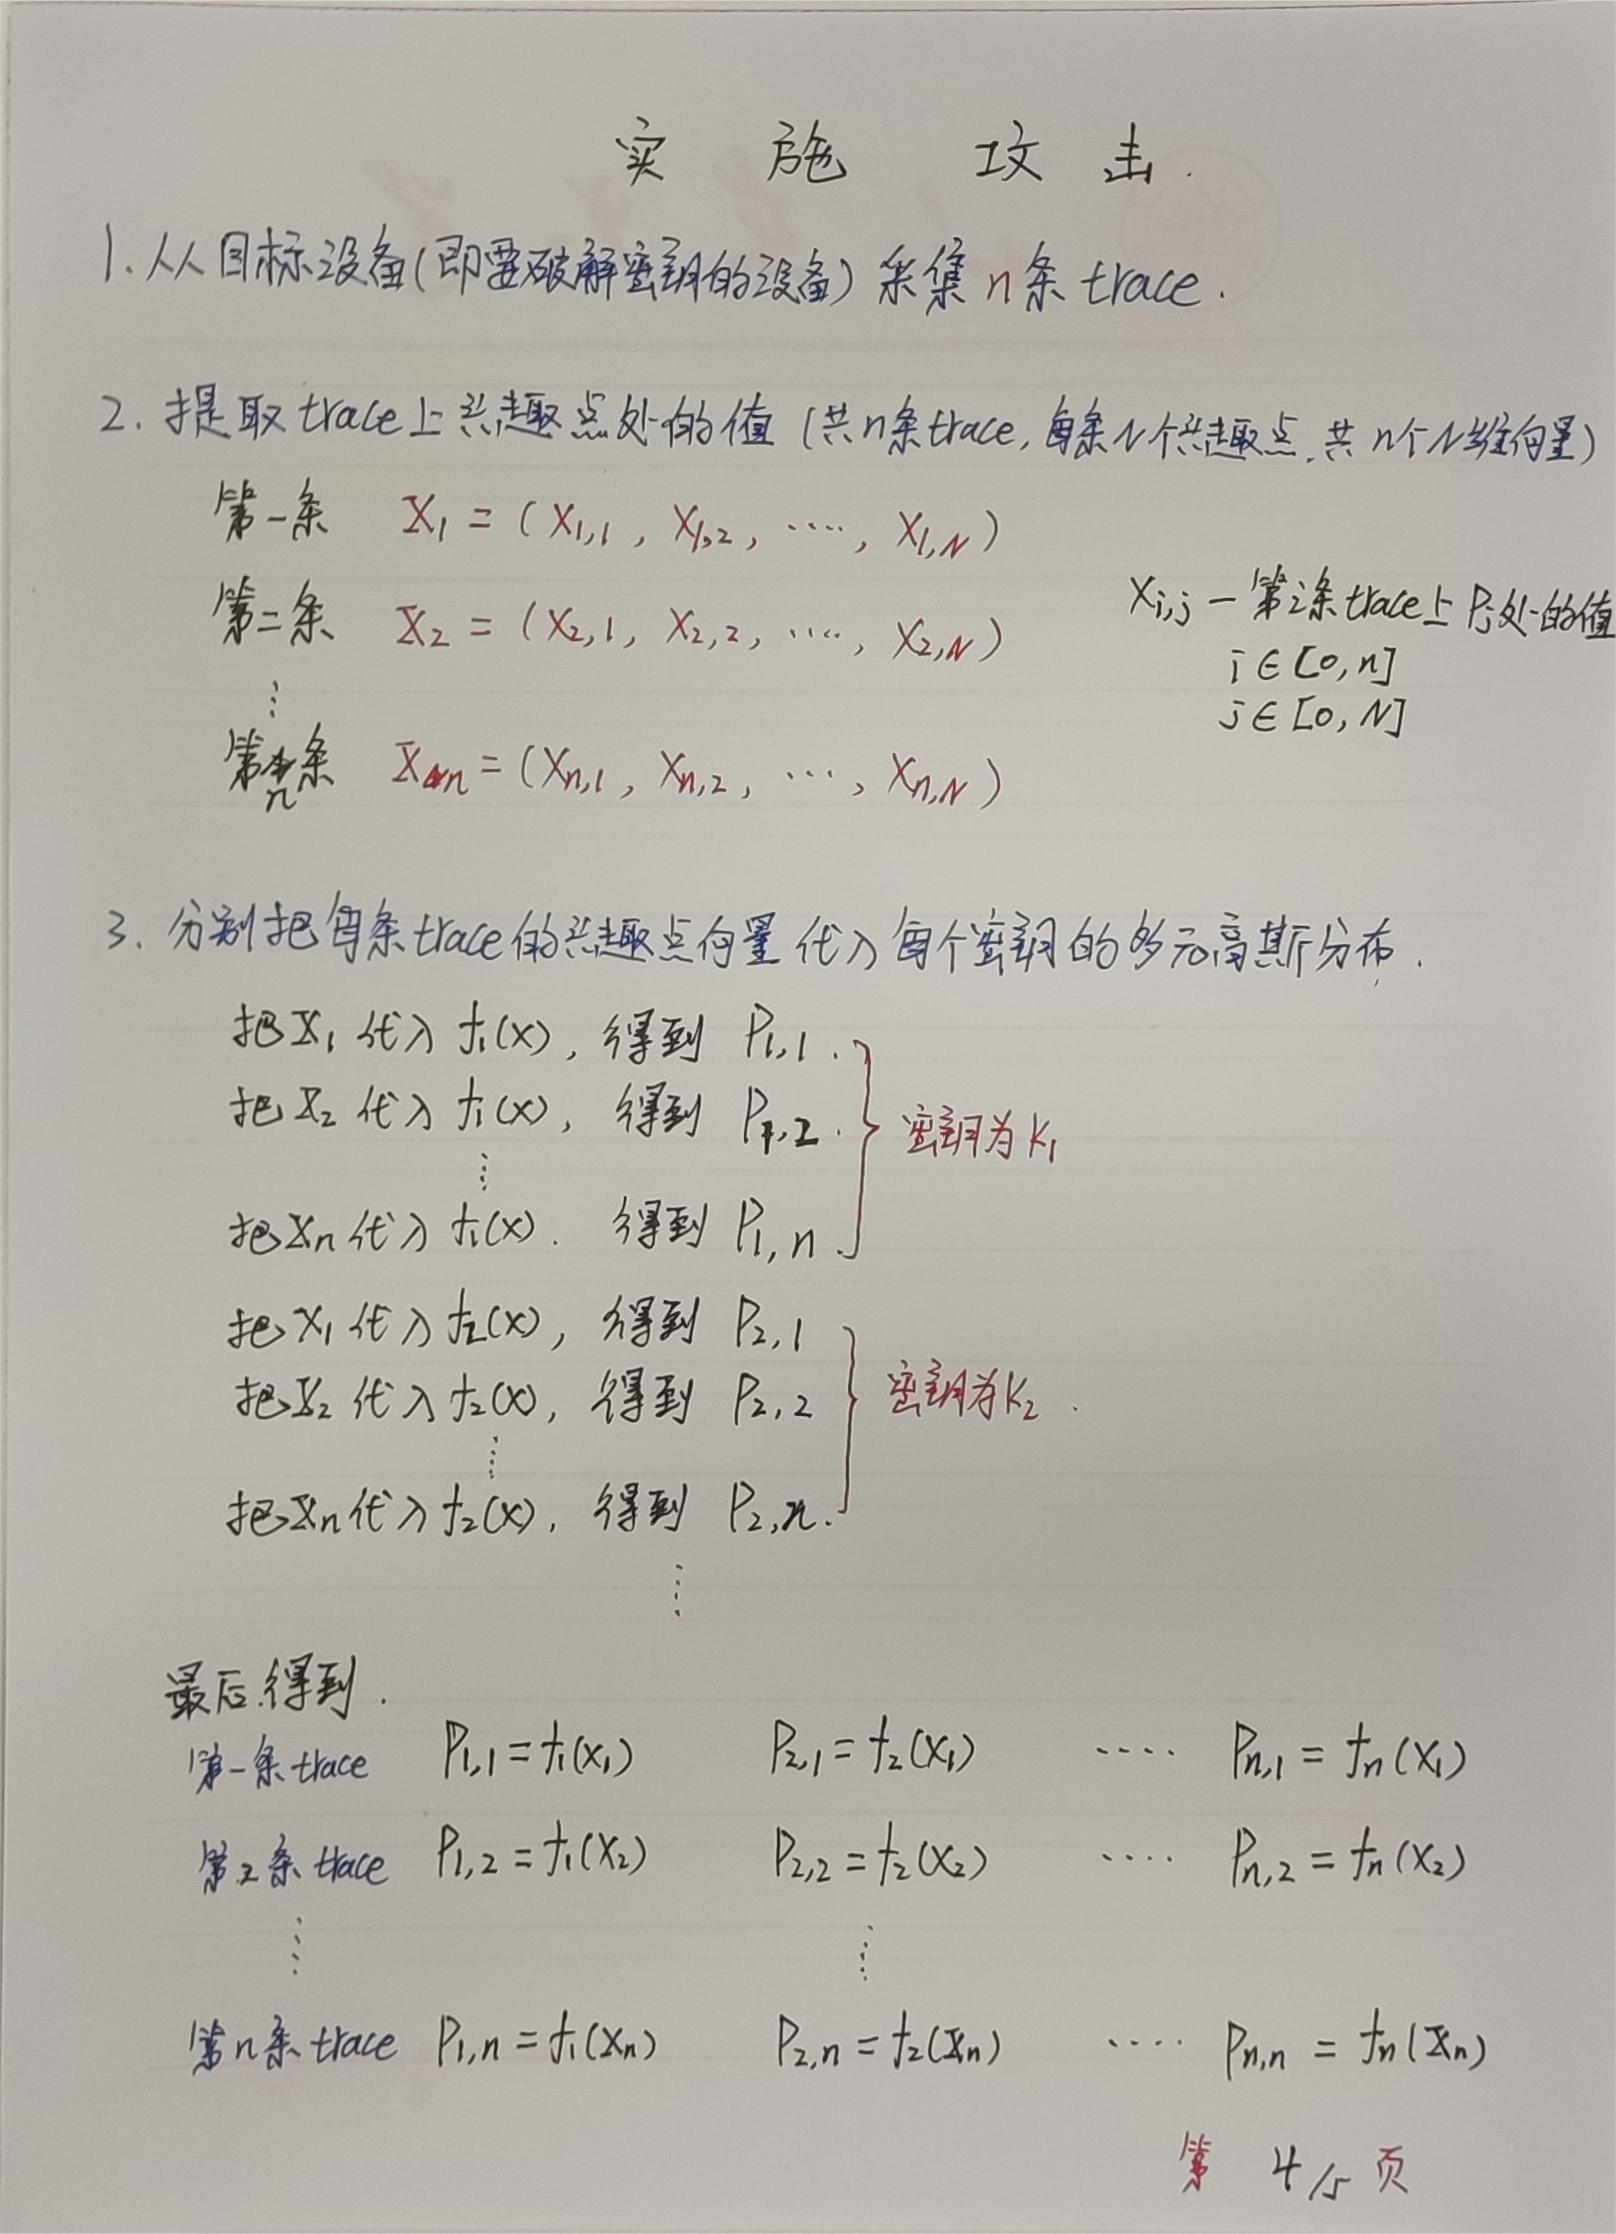 实 施 攻 击.
1. 从目标设备(即要破解密钥的设备) 采集 n条 trace.
2. 提取 trace上兴趣点处的值 (共n条trace, 每条N个兴趣点, 共 n个N维向量)
第一条 X₁ = ( X₁,₁ , X₁,₂ , ····, X₁,N )
第二条 X₂ = ( X₂,₁ , X₂,₂ , ····, X₂,N )
Xi,j — 第i条trace上 Pj处的值
i ∈ [0, n]
j ∈ [0, N]
⋮
第n条 Xn = ( Xn,₁ , Xn,₂ , ···, Xn,N )
3. 分别把每条trace的兴趣点向量代入每个密钥的多元高斯分布.
把 X₁ 代入 f₁(x), 得到 P₁,₁ .
把 X₂ 代入 f₁(x), 得到 P₁,₂ . 密钥为 K₁
⋮
把 Xn 代入 f₁(x). 得到 P₁,n .
把 X₁ 代入 f₂(x), 得到 P₂,₁
把 X₂ 代入 f₂(x), 得到 P₂,₂ 密钥为K₂ .
⋮
把 Xn 代入 f₂(x), 得到 P₂,n.
⋮
最后得到.
第一条 trace P₁,₁ = f₁(x₁) P₂,₁ = f₂(x₁) ···· Pn,₁ = fn(x₁)
第2条 trace P₁,₂ = f₁(x₂) P₂,₂ = f₂(x₂) ···· Pn,₂ = fn(x₂)
⋮ ⋮
第n条 trace P₁,n = f₁(xn) P₂,n = f₂(Xn) ···· Pn,n = fn(Xn)
第 4/5 页